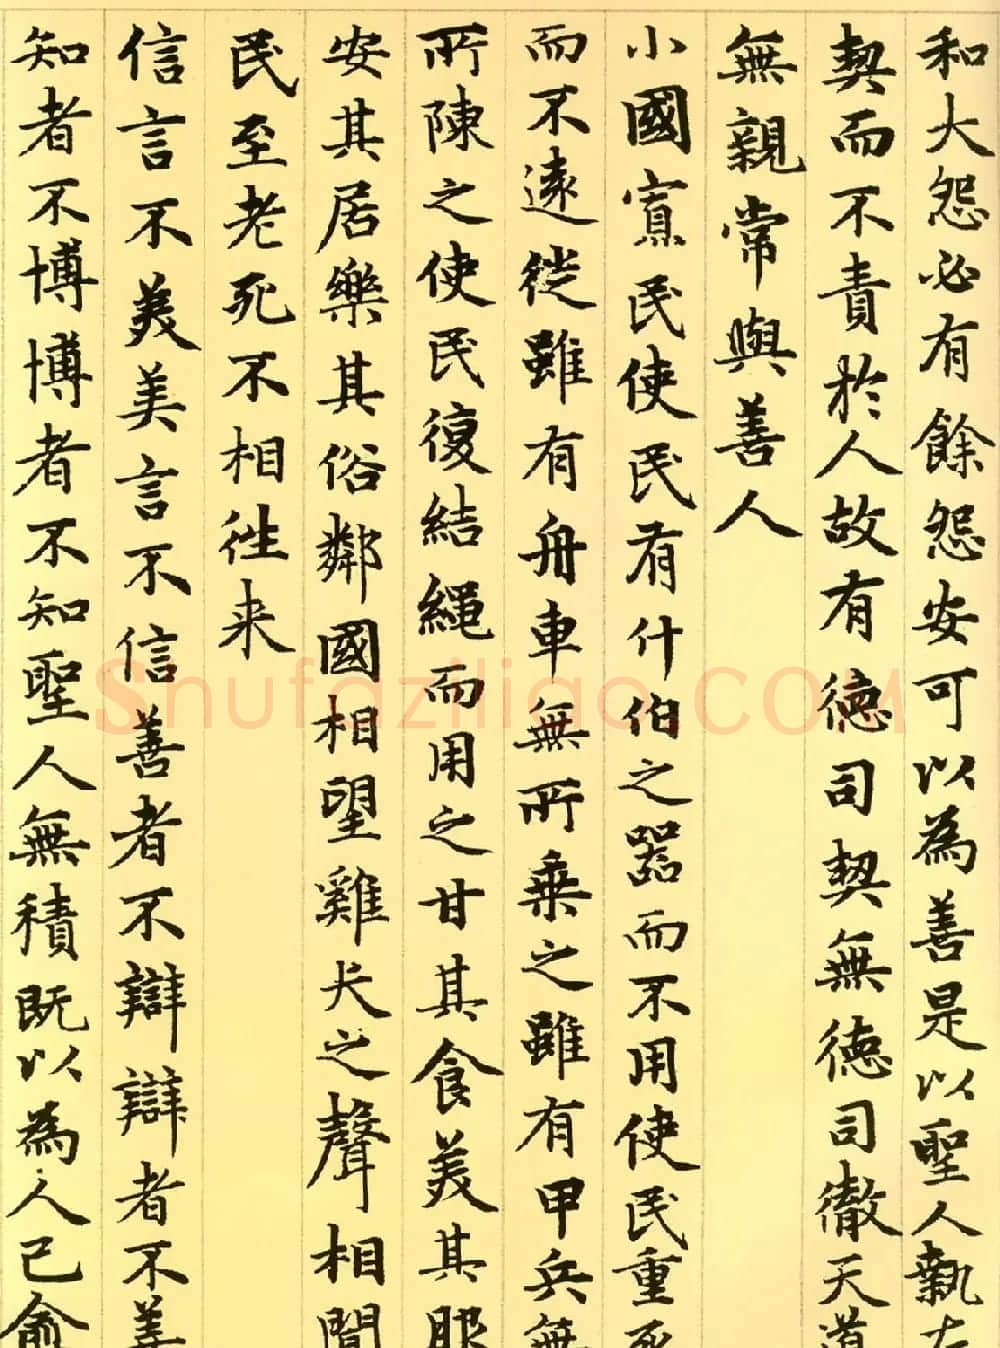 和大怨必有餘怨安可以為善是以聖人執左
契而不責於人故有德司契無德司徹天道
無親常與善人
小國寡民使民有什伯之器而不用使民重死
而不遠徙雖有舟車無所乘之雖有甲兵無
所陳之使民復結繩而用之甘其食美其服
安其居樂其俗鄰國相望雞犬之聲相聞
民至老死不相往来
信言不美美言不信善者不辯辯者不善
知者不博博者不知聖人無積既以為人己俞
Shufaziliao.COM